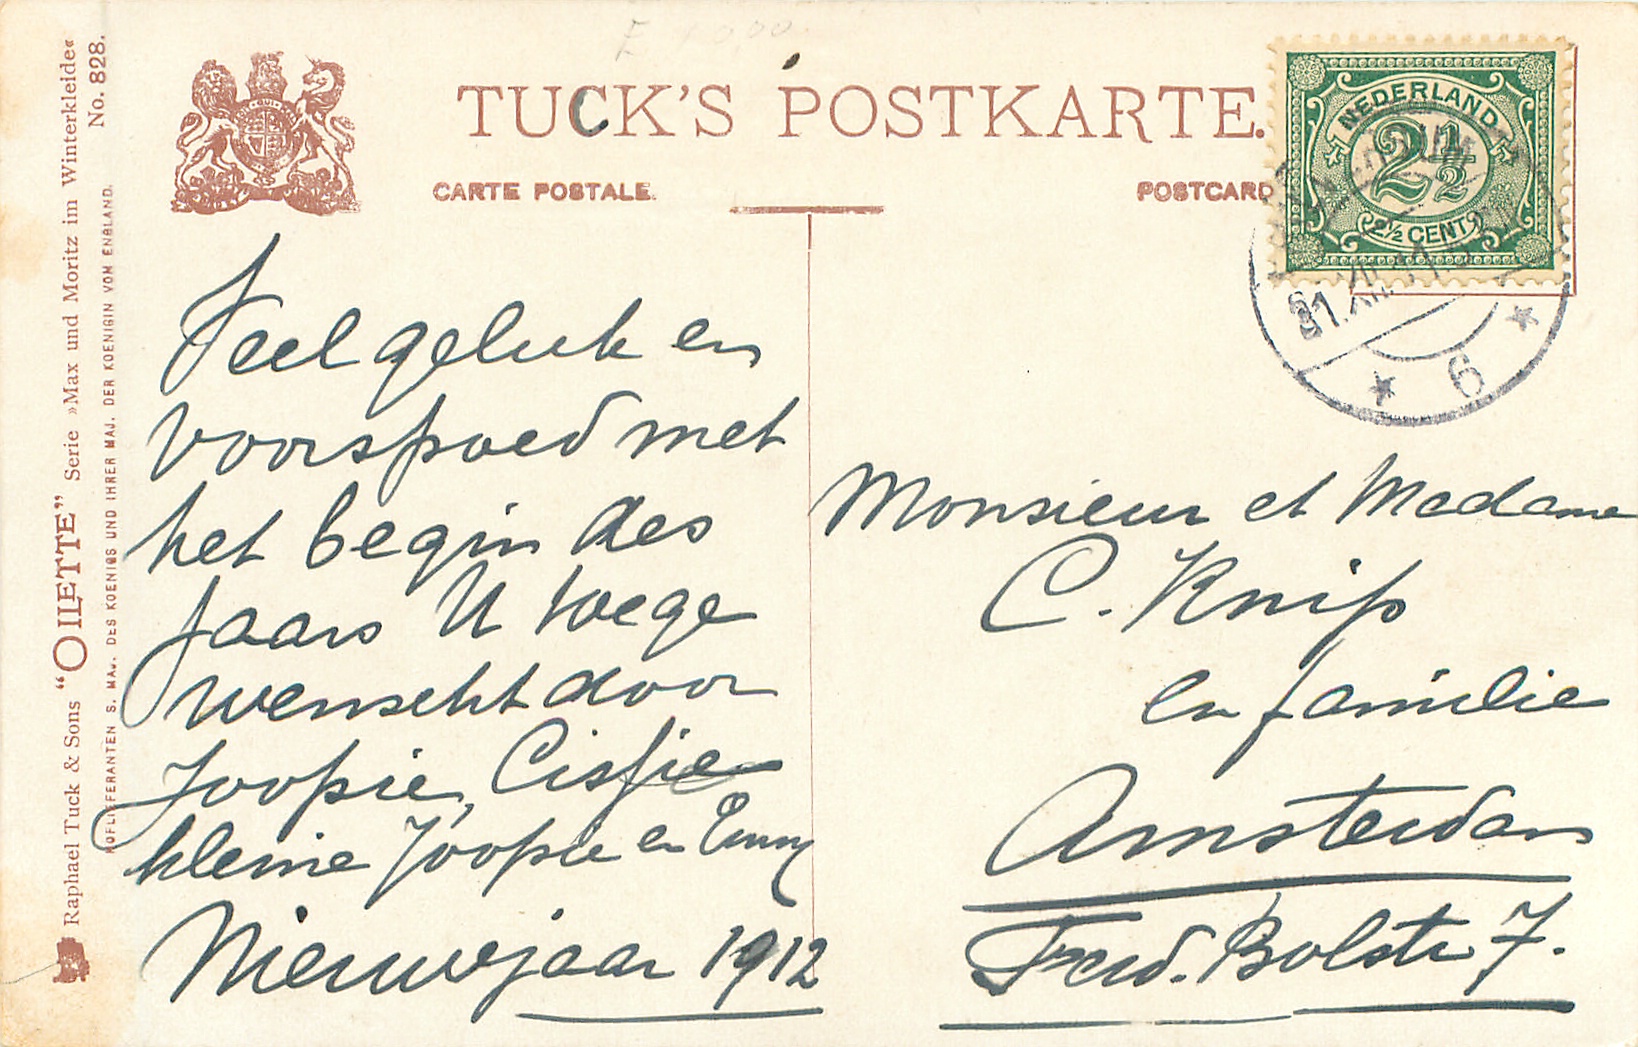 TUCK'S POSTKARTE.
CARTE POSTALE.
POSTCARD
Raphael Tuck & Sons “OILETTE” Serie »Max und Moritz im Winterkleide«
No. 828.
HOFLIEFERANTEN S. MAJ. DES KOENIGS UND IHRER MAJ. DER KOENIGIN VON ENGLAND.
NEDERLAND
2½
2½ CENT
31.XII.11
6
Veel geluk en
voorspoed met
het begin des
jaars U toege
wenscht door
Joopie, Cisfie
kleine Joopie en Emmy
Nieuwejaar 1912
Monsieur et Madame
C. Knip
en familie
Amsterdam
Ferd. Bolstr 7.